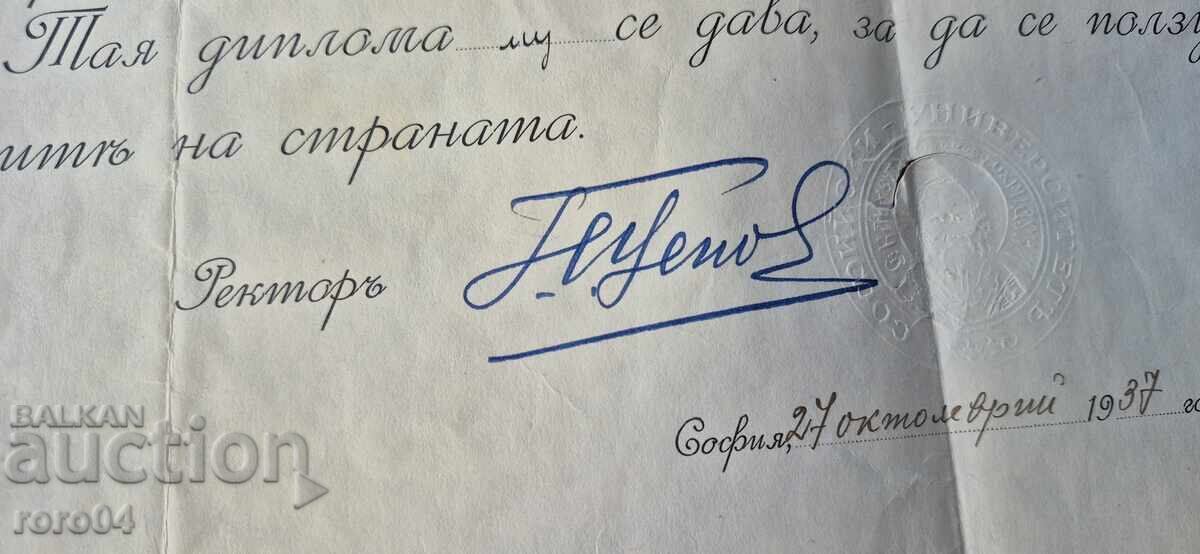 Тая диплома му се дава, за да се ползу
итѣ на страната.
Ректоръ
София, 27 октомврий 1937 го
СОФИЙСКИ УНИВЕРСИТЕТЪ
BALKAN
auction
roro04